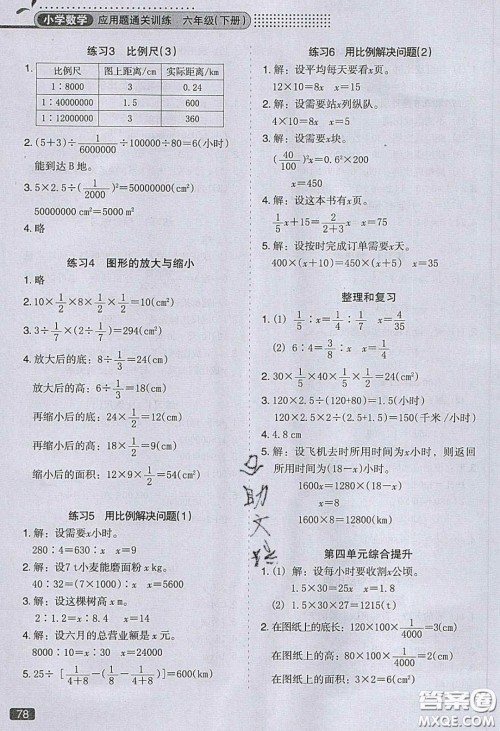 小学数学 应用题通关训练 六年级(下册)
练习3 比例尺(3)
1. 比例尺 图上距离/cm 实际距离/km
1∶8000 3 0.24
1∶40000000 1.5 600
1∶12000000 3 360
2. (5+3)÷1/6000000÷100000÷80=6(小时)
能到达 B 地。
3. 5×2.5÷(1/2000)²=50000000(cm²)
50000000 cm²=5000 m²
4. 略
练习4 图形的放大与缩小
1. 略
2. 10×1/2×8×1/2×1/2=10(cm²)
3. 3÷1/7×(2÷1/7)=294(cm²)
4. 放大后的底：8÷1/3=24(cm)
放大后的高：6÷1/3=18(cm)
再缩小后的底：24×1/2=12(cm)
再缩小后的高：18×1/2=9(cm)
缩小后的面积：12×9×1/2=54(cm²)
练习5 用比例解决问题(1)
1. 解：设需要x小时。
280∶4=630∶x x=9
2. 解：设7 t小麦能磨面粉x kg。
40∶32=(7×1000)∶x x=5600
3. 解：设这棵树高x m。
1.2∶2=x∶8.4 x=14
4. 解：设六月的总营业额是x元。
9000∶450=x∶420 x=8400
5. 25÷[1/4+8-(1/4-1/4+8)]
练习6 用比例解决问题(2)
1. 解：设平均每天要看x页。
12×10=8x x=15
2. 解：设需要站x列纵队。
4×10=8x x=5
3. 解：设需要x块。
(40/100)²x=0.6²×200
x=450
4. 解：设这本书有x页。
1/5x+15=2/2+3x x=75
5. 解：设按时完成订单需要x天。
400×(x+10)=450×(x+5) x=35
整理和复习
1. (1) 1/5∶x=1/4∶1/7 x=4/35
(2) 6∶1/3=x∶1/4 x=9/2
2. 30×1/5×20×1/5×1/2=12(cm²)
3. 120×2.5÷(120+80)=1.5(小时)
120×2.5÷(2.5+1.5)=150(千米/小时)
4. 4.8 cm
5. 解：设飞机去时所用时间为x小时，则返回
所用时间为(18-x)小时。
1600x=1280×(18-x)
x=8
1600×8=12800(km)
第四单元综合提升
1. (1) 解：设每小时要收割x公顷。
1.5×30=25x x=1.8
(2) 1.5×30×27=1215(t)
2. 在图纸上的底长：120×100×1/4000=3(cm)
在图纸上的高：80×100×1/4000=2(cm)
在图纸上的面积：3×2×1/2=3(cm²)
助
文
78
答案圈
MXQE.COM